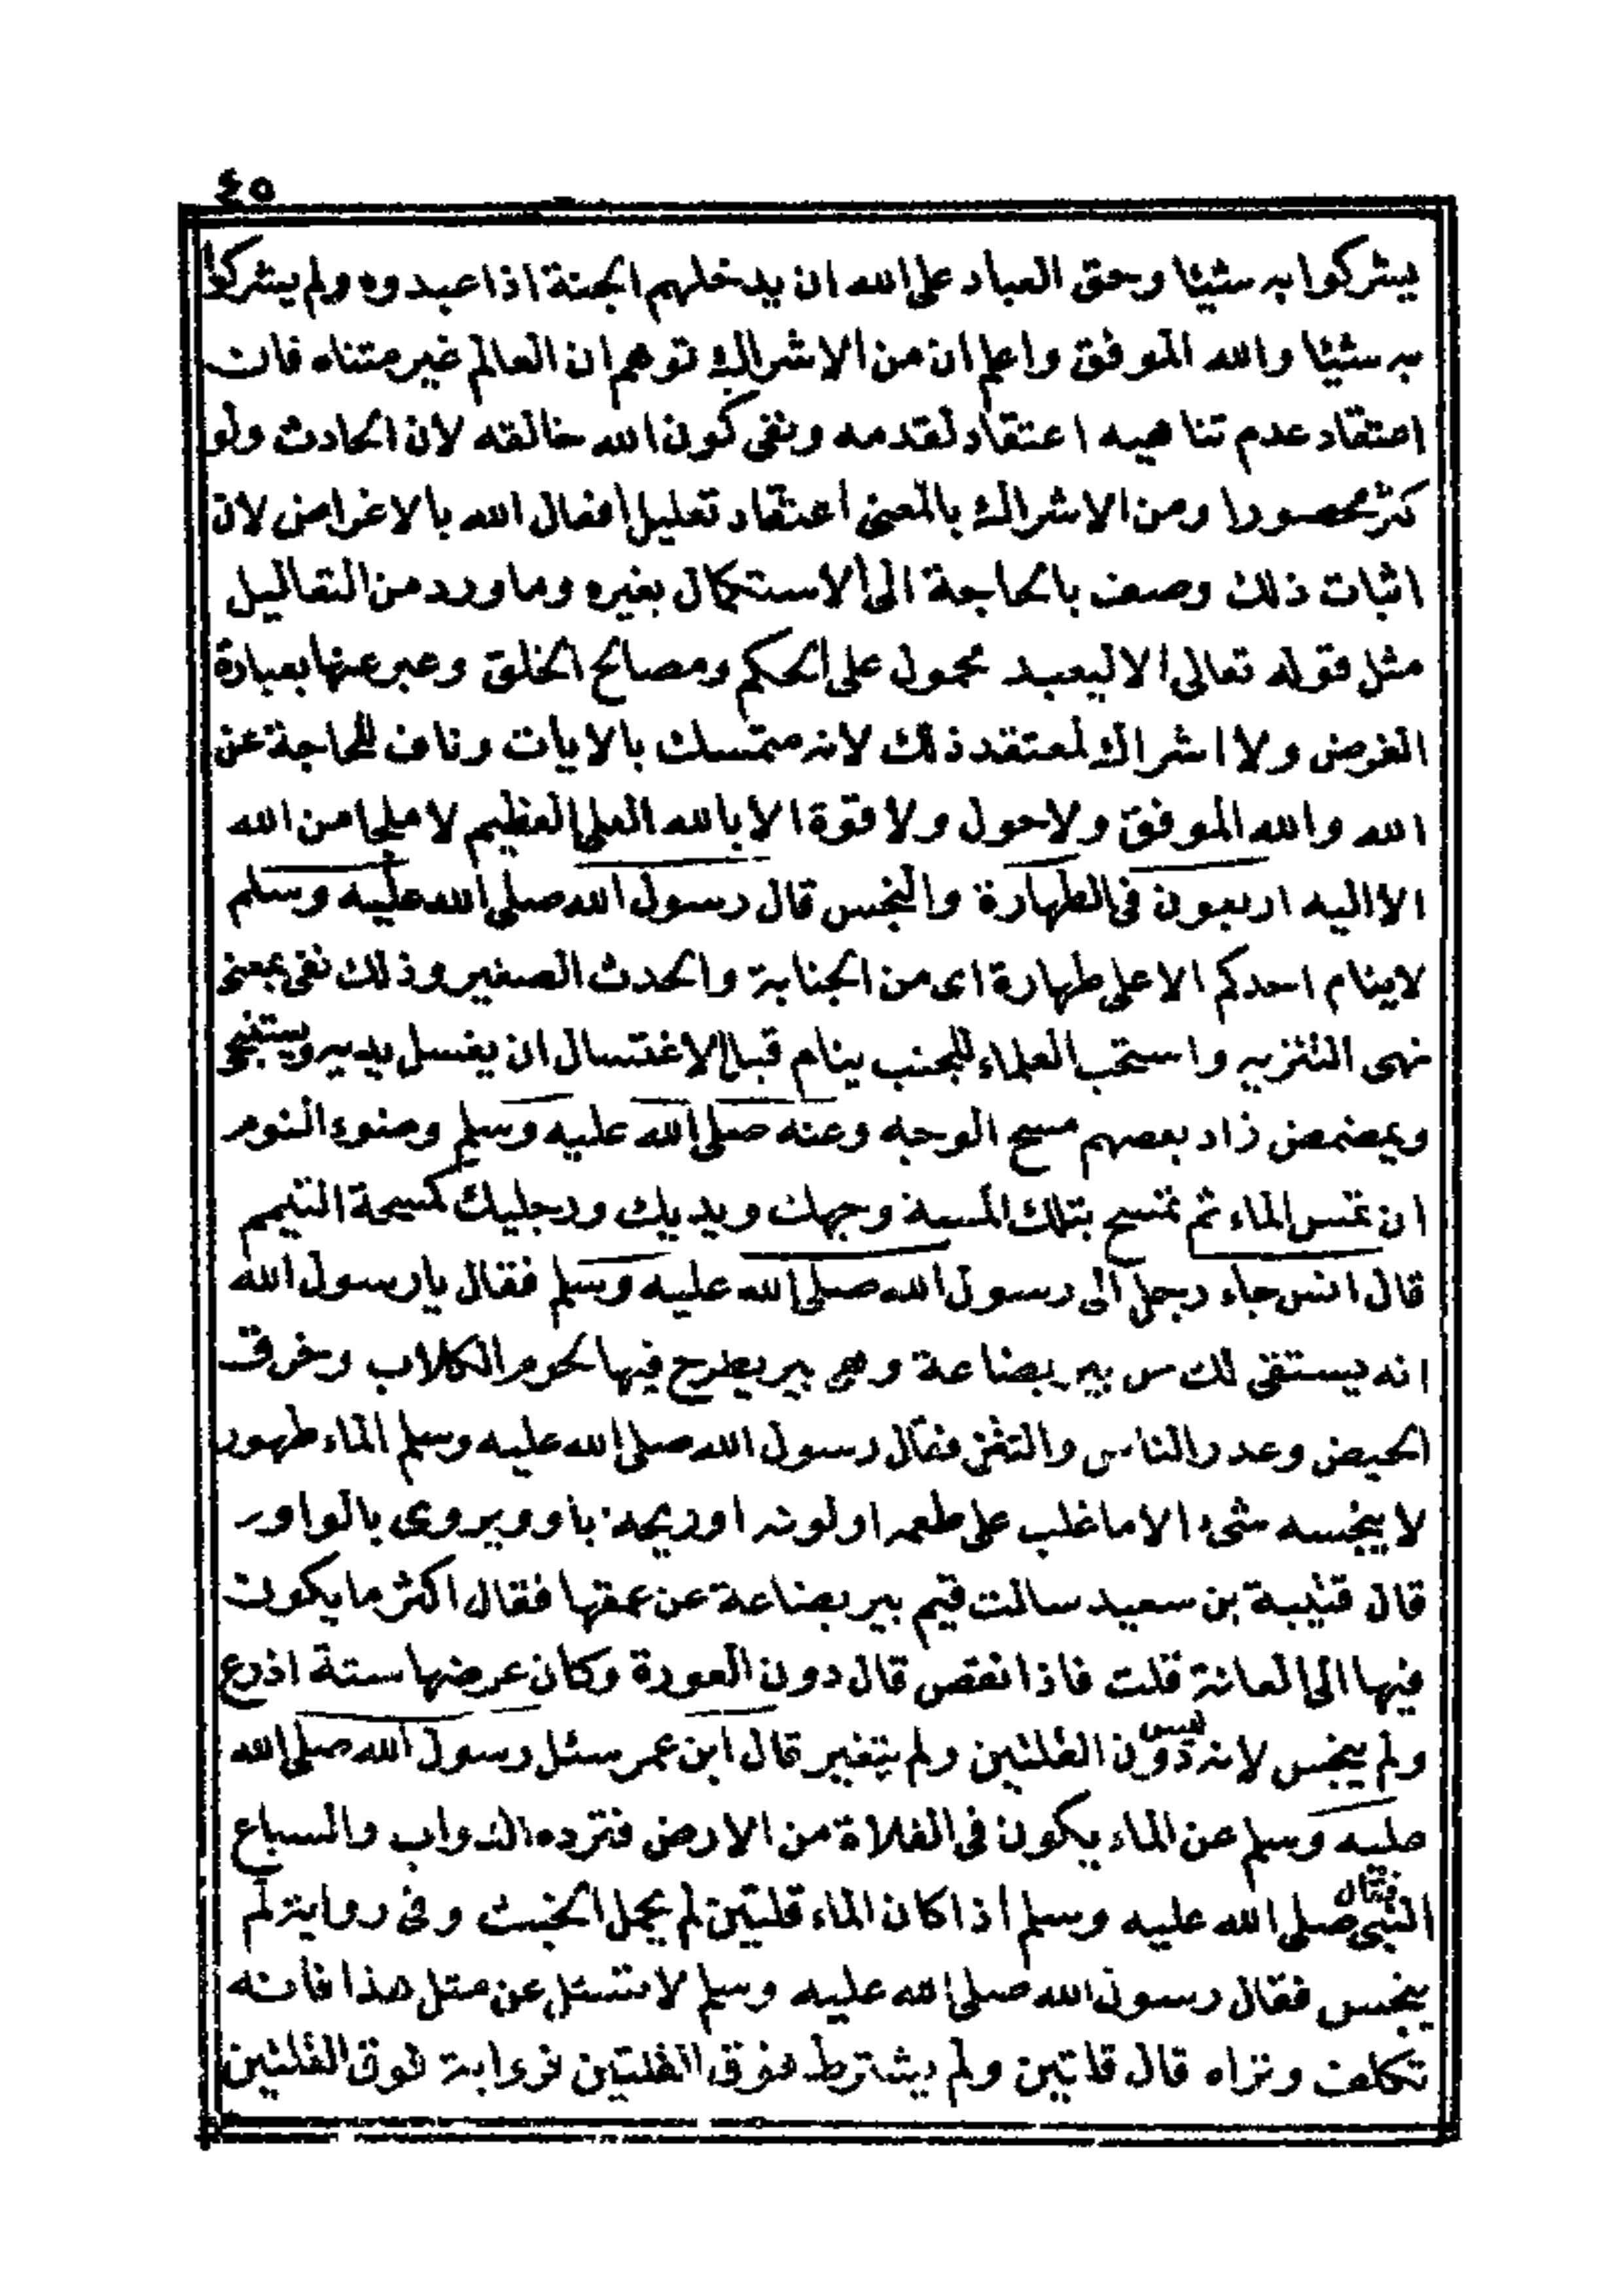 ٤٥
يشركوا به شيئا وحق العباد على الله ان يدخلهم الجنة اذا عبدوه ولم يشركوا
به شيئا والله الموفق واعلم ان من الاشراك توهم ان العالم غير متناه فان
اعتقاد عدم تناهيه اعتقاد لقدمه ونفى كون الله خالقه لان الحادث ولو
كثر محصورا ومن الاشراك بالمعنى اعتقاد تعليل افعال الله بالاغراض لان
اثبات ذلك وصف بالحاجة الى الاستكمال بغيره وما ورد من التعاليل
مثل قوله تعالى الا ليعبد محمول على الحكم ومصالح الخلق وعبر عنها بعبارة
الغرض ولا اشراك لمعتقد ذلك لانه متمسك بالايات وناف للحاجة عن
الله والله الموفق ولا حول ولا قوة الا بالله العلى العظيم لا ملجا من الله
الا اليه اربعون فى الطهارة والنجس قال رسول الله صلى الله عليه وسلم
لا ينام احدكم الا على طهارة اى من الجنابة والحدث الصغير وذلك نفى بمعنى
نهى التنزيه واستحب العلماء للجنب ينام قبل الاغتسال ان يغسل يديه ويستنجى
ويمضمض زاد بعضهم مسح الوجه وعنه صلى الله عليه وسلم وضوء النوم
ان تمس الماء ثم تمسح بتلك المسة وجهك ويديك ورجليك كمسحة التيمم
قال انس جاء رجل الى رسول الله صلى الله عليه وسلم فقال يا رسول الله
انه يستقى لك من بير بضاعة وهى بير يطرح فيها لحوم الكلاب وخرق
الحيض وعدر الناس والنتن فقال رسول الله صلى الله عليه وسلم الماء طهور
لا ينجسه شىء الا ما غلب على طعمه او لونه او ريحه باو ويروى بالواو
قال قتيبة بن سعيد سالت قيم بير بضاعة عن عمقها فقال اكثر ما يكون
فيها الى العانة قلت فاذا نقص قال دون العورة وكان عرضها ستة اذرع
ولم ينجس لانه ليس دون القلتين ولم يتغير قال ابن عمر سئل رسول الله صلى الله
عليه وسلم عن الماء يكون فى الفلاة من الارض فترده الدواب والسباع
فقال النبى صلى الله عليه وسلم اذا كان الماء قلتين لم يحمل الخبث وفى رواية لم
ينجس فقال رسول الله صلى الله عليه وسلم لا تسئل عن مثل هذا فانه
تكلف ونراه قال قلتين ولم يشترط فوق القلتين فرواية فوق القلتين